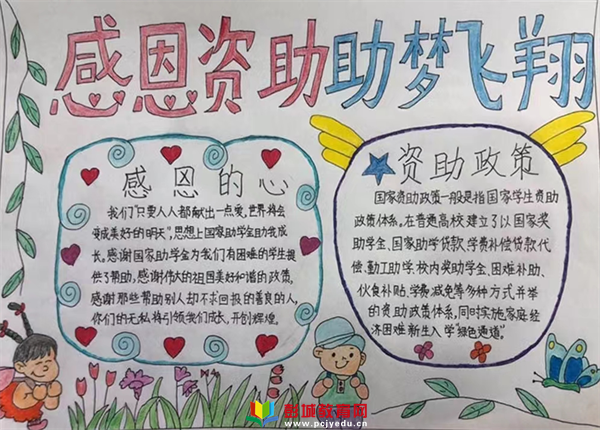 感恩资助助梦飞翔
感恩的心
我们只要人人都献出一点爱,世界将会
变成美好的明天",思想上国家助学金助我成
长。感谢国家助学金为我们有困难的学生提
供了帮助,感谢伟大的祖国美好和谐的政策,
感谢那些帮助别人却不求回报的善良的人,
你们的无私将引领我们成长,开创辉煌。
资助政策
国家资助政策一般是指国家学生资助
政策体系。在普通高校建立了以国家奖
助学金、国家助学贷款、学费补偿贷款代
偿、勤工助学、校内奖助学金、困难补助、
伙食补贴、学费减免等多种方式并举
的资助政策体系,同时实施家庭经
济困难新生入学"绿色通道"。
彭城教育网
www.pcjyedu.cn